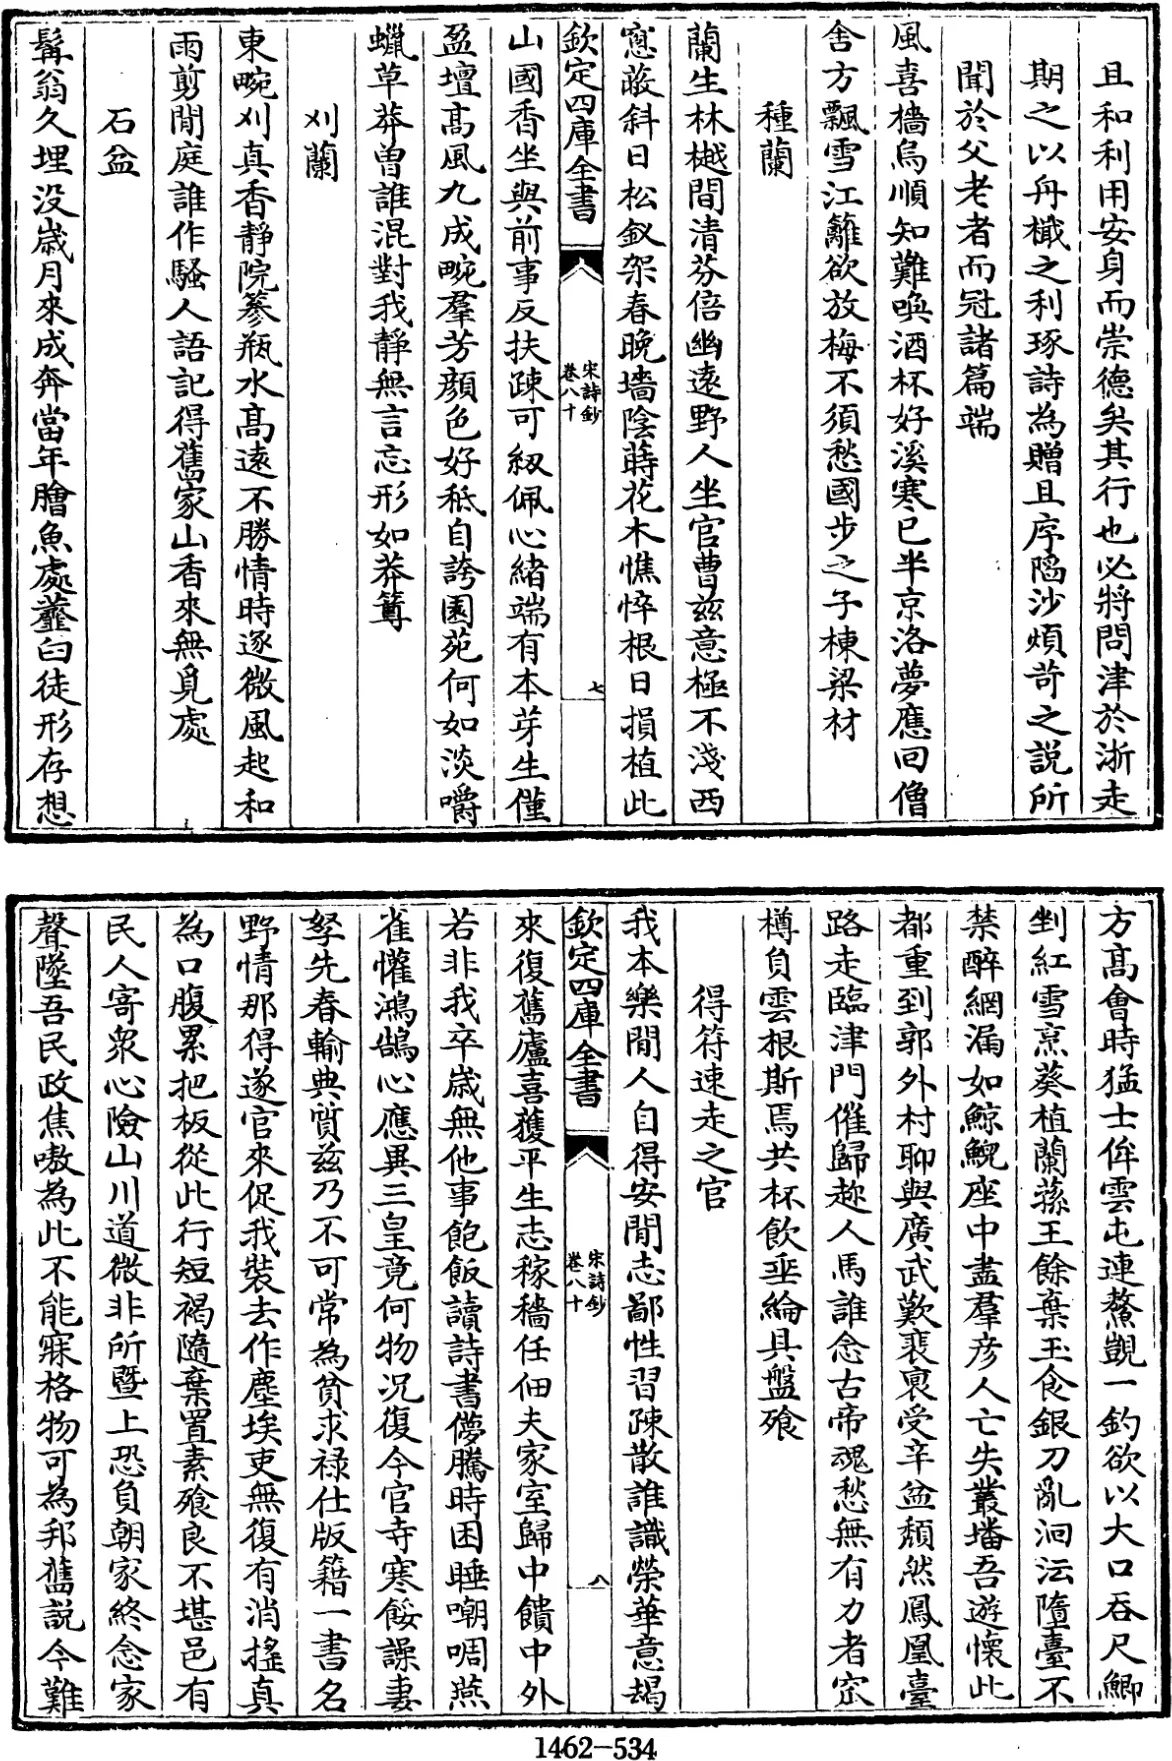 且和利用安身而崇德矣其行也必將問津於浙走
期之以舟檝之利琢詩為贈且序陽沙煩苛之説所
聞於父老者而冠諸篇端
風喜檣烏順知難喚酒杯好溪寒已半京洛夢應回僧
舍方飄雪江籬欲放梅不須愁國步之子棟梁材
種蘭
蘭生林樾間清芬倍幽遠野人坐官曹兹意極不淺西
窻蔽斜日松釵架春晚墻陰蒔花木憔悴根日損植此
欽定四庫全書
宋詩鈔
卷八十
七
山國香坐與前事反扶疎可紉佩心緒端有本芽生僅
盈壇髙風九成畹羣芳顔色好秪自誇園苑何如淡嚼
蠟草莽曽誰混對我靜無言忘形如莽䔿
刈蘭
東畹刈真香靜院篸瓶水髙逺不勝情時逐微風起和
雨剪閒庭誰作騷人語記得舊家山香來無覓處
石盆
髯翁久埋没歳月來成奔當年膾魚處虀臼徒形存想
方髙會時猛士侔雲屯連鰲覬一釣欲以大口吞尺鯽
剉紅雪烹葵植蘭蓀王餘棄玉食銀刀亂洄沄墮臺不
禁醉網漏如鯨鯢座中盡羣彦人亡失叢墦吾遊懐此
都重到郭外村聊與廣武歎裴褱受辛盆頽然鳳凰臺
路走臨津門催歸趂人馬誰念古帝魂愁無有力者窊
樽負雲根斯焉共杯飲垂綸具盤飱
得符速走之官
我本樂閒人自得安閒志鄙性習疎散誰識榮華意朅
欽定四庫全書
宋詩鈔
卷八十
八
來復舊廬喜獲平生志稼穡任佃夫家室歸中饋中外
若非我卒歳無他事飽飯讀詩書儚騰時困睡嘲啁燕
雀懽鴻鵠心應異三皇竟何物况復今官寺寒餒譟妻
孥先春輸典質兹乃不可常為貧求禄仕版籍一書名
野情那得遂官來促我裝去作塵埃吏無復有消揺真
為口腹累把板從此行短褐隨棄置素飱良不堪邑有
民人寄衆心險山川道微非所暨上恐負朝家終念家
聲墜吾民政焦嗷為此不能寐格物可為邦舊説今難
1462-534